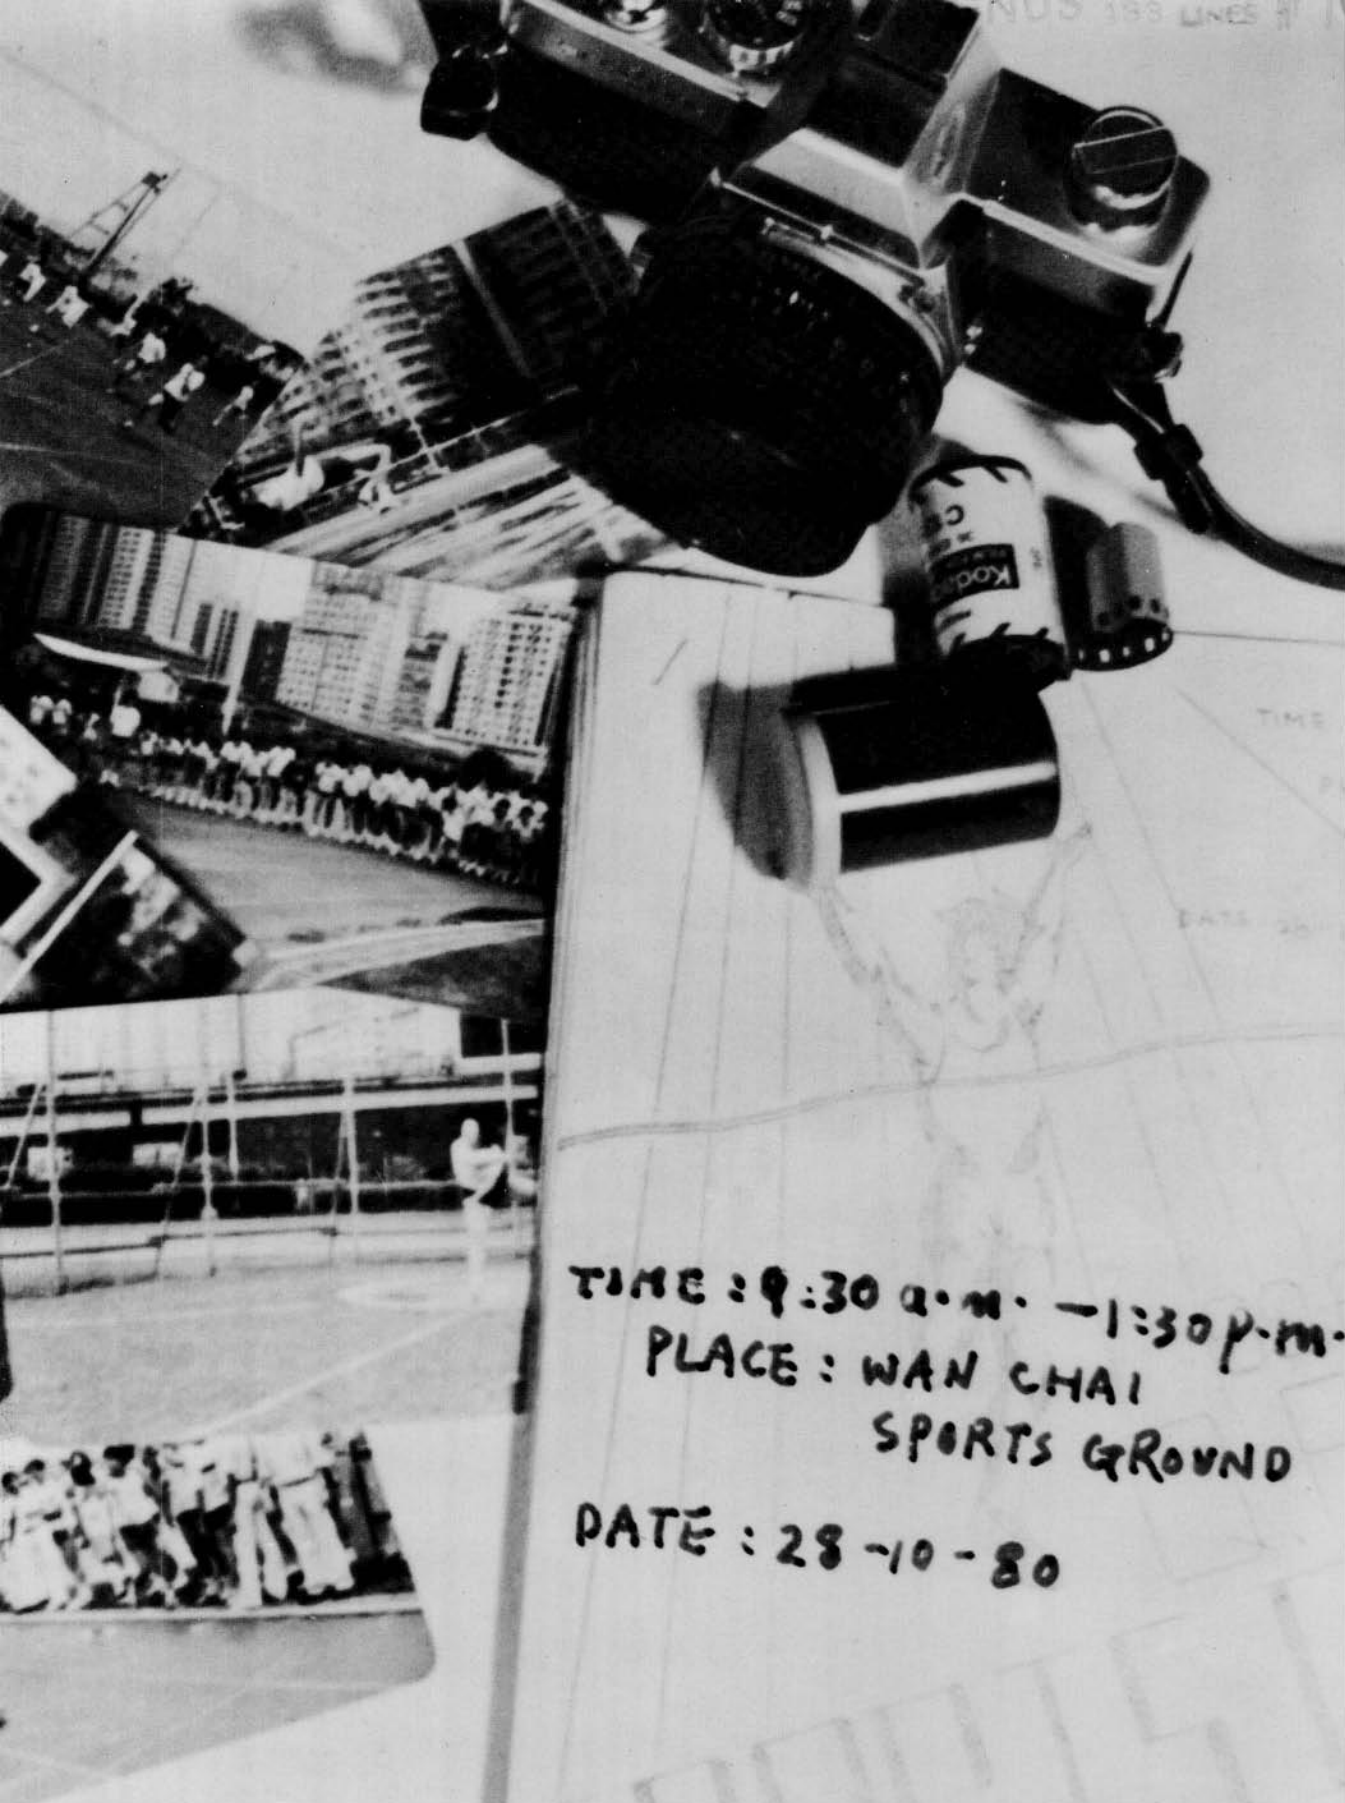 188 LINES
Kodak
TIME
DATE
TIME : 9:30 a.m. – 1:30 p.m.
PLACE : WAN CHAI
SPORTS GROUND
DATE : 28-10-80